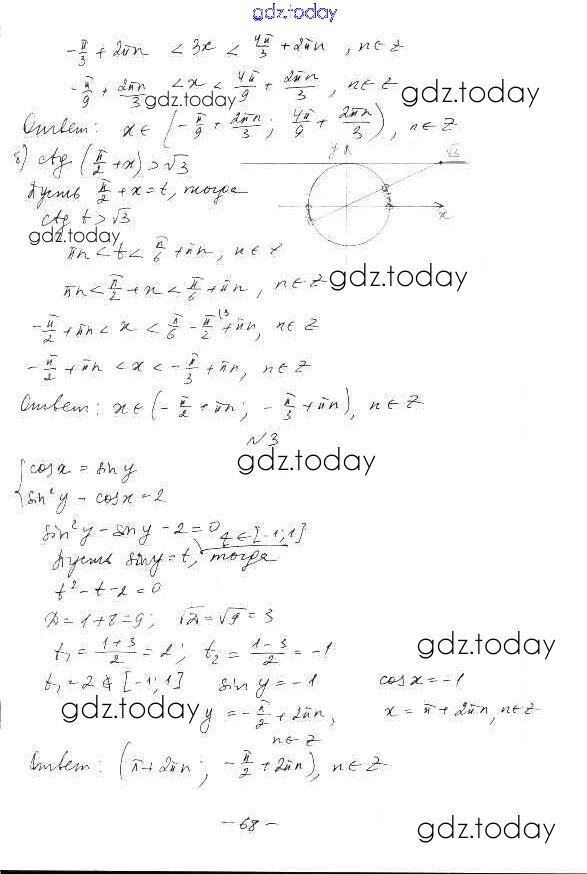 gdz.today
-π/3 + 2πn < 3x < 4π/3 + 2πn, n∈Z
-π/9 + 2πn/3 < x < 4π/9 + 2πn/3, n∈Z
gdz.today gdz.today
Ответ: x∈(-π/9 + 2πn/3; 4π/9 + 2πn/3), n∈Z
б) ctg(π/2 + x) > √3
y √3
Пусть π/2 + x = t, тогда
x
ctg t > √3
gdz.today
πn < t < π/6 + πn, n∈Z
πn < π/2 + x < π/6 + πn, n∈Z gdz.today
-π/2 + πn < x < π/6 - π/2 (3 + πn, n∈Z
-π/2 + πn < x < -π/3 + πn, n∈Z
Ответ: x∈(-π/2 + πn; -π/3 + πn), n∈Z
N3
gdz.today
{cos x = sin y
sin²y - cos x = 2
sin²y - sin y - 2 = 0
Пусть sin y = t, t∈[-1;1] тогда
t² - t - 2 = 0
D = 1+8 = 9; √D = √9 = 3
t₁ = (1+3)/2 = 2; t₂ = (1-3)/2 = -1
gdz.today
t₁ = 2 ∉ [-1;1] sin y = -1 cos x = -1
gdz.today y = -π/2 + 2πn, n∈Z x = π + 2πn, n∈Z
Ответ: (π + 2πn; -π/2 + 2πn), n∈Z
- 68 -
gdz.today